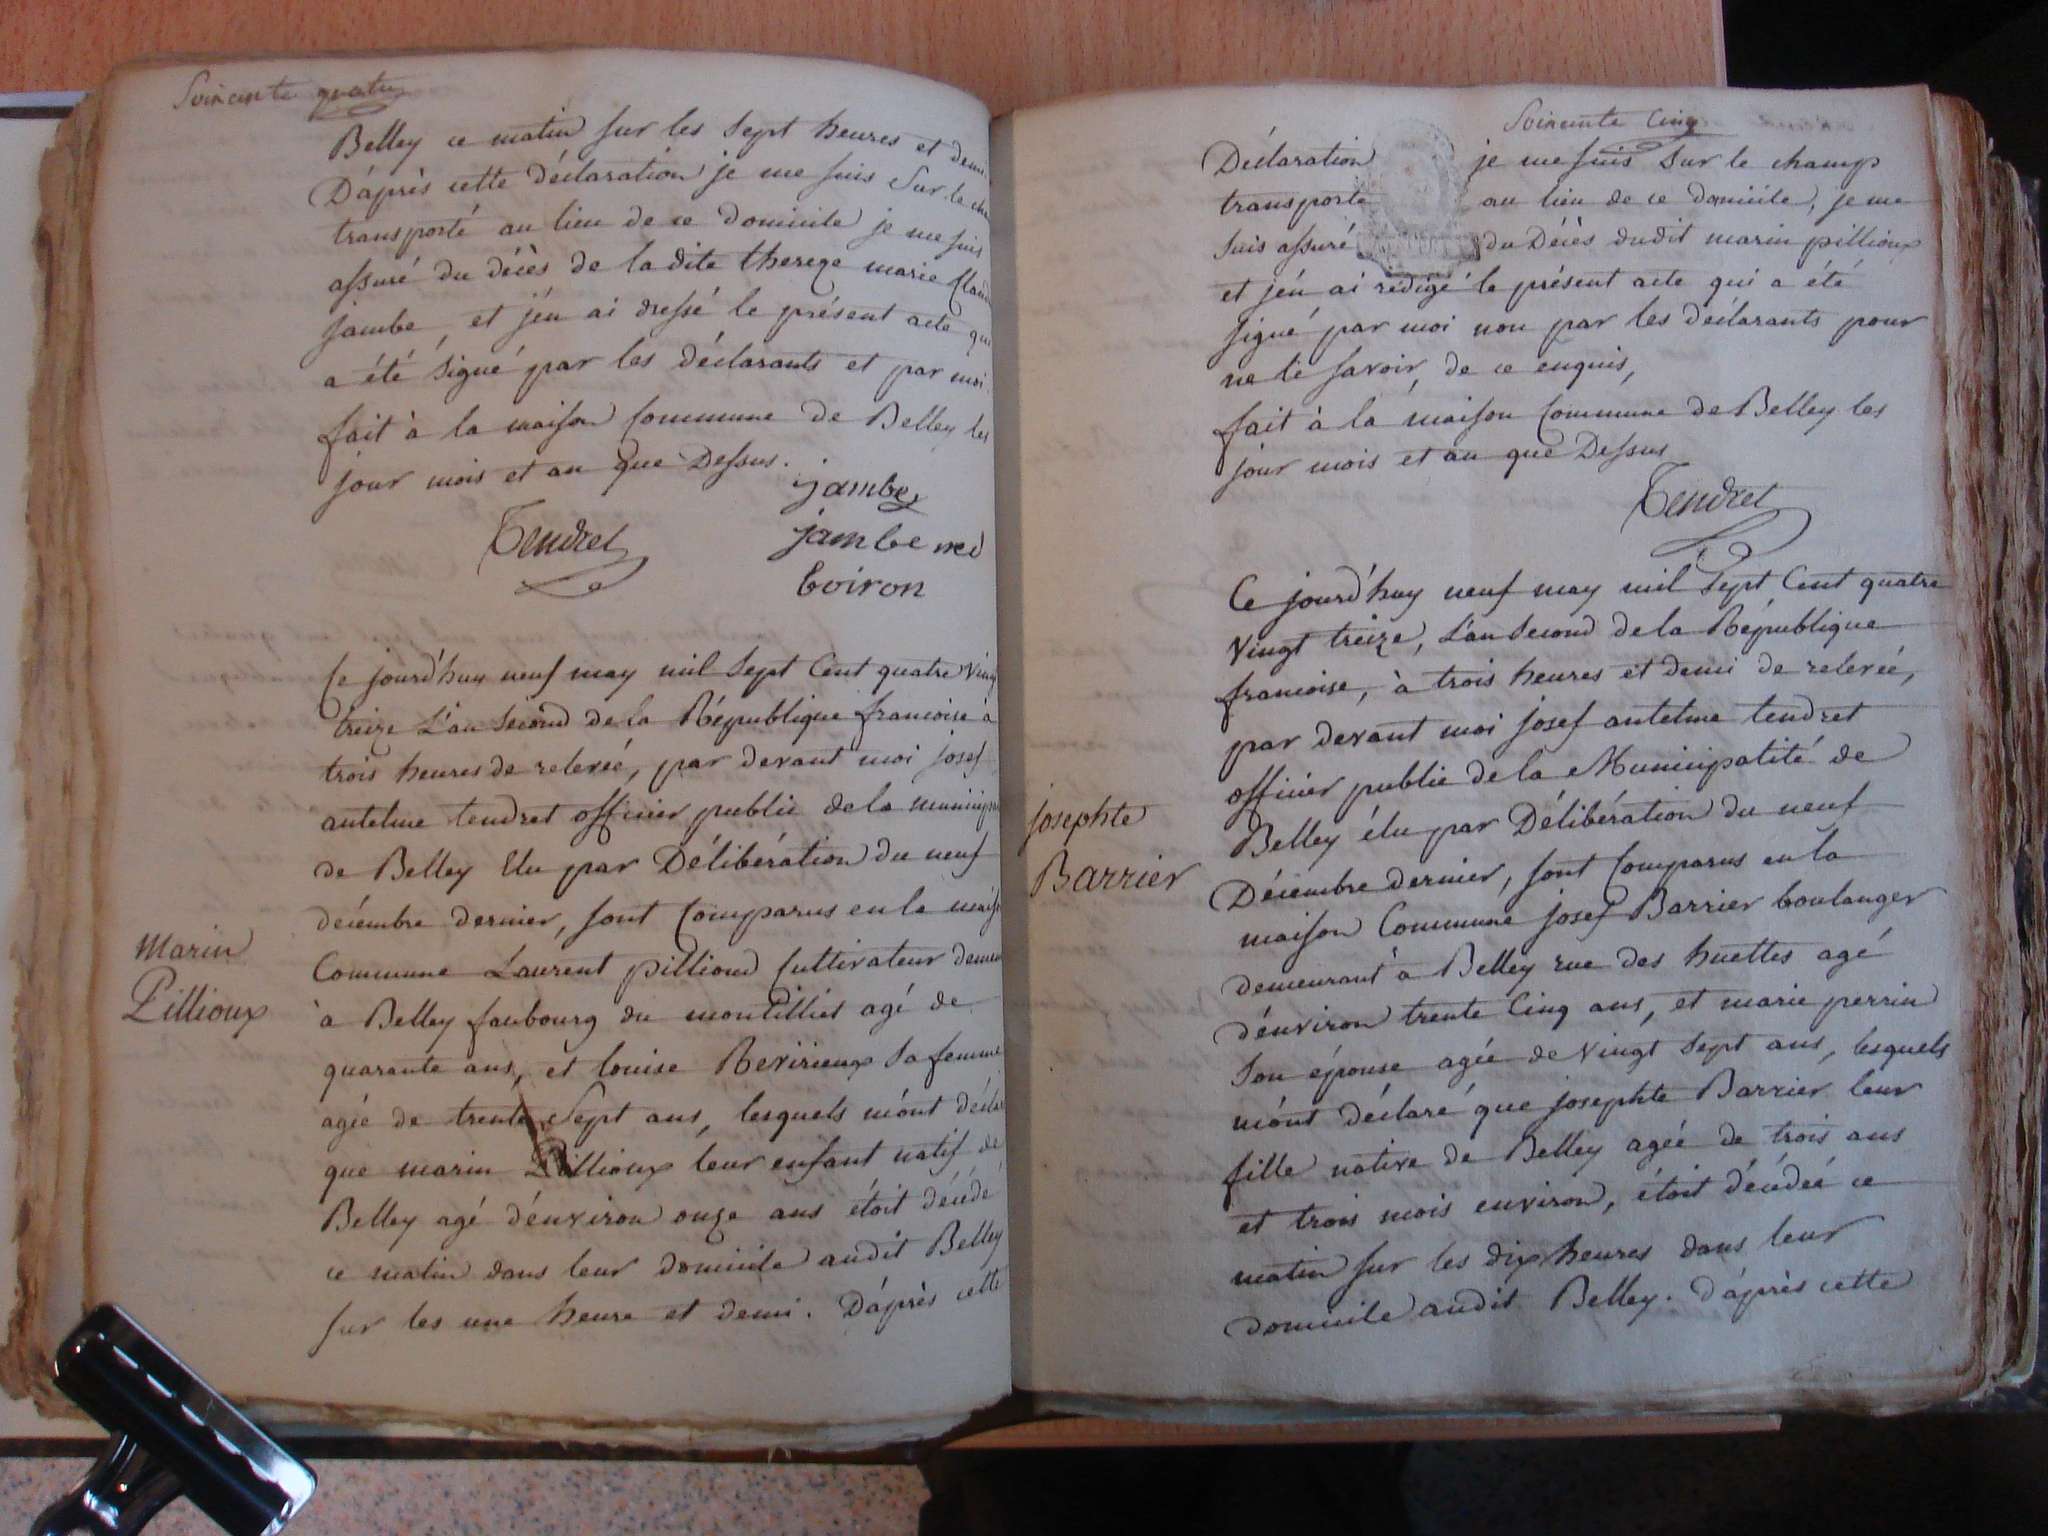 Soixante quatre
Belley ce matin sur les sept heures et demi
D'après cette déclaration je me suis sur le cha
transporté au lieu de ce domicile je me suis
assuré du décès de la dite thereze marie Claud
jambe, et j'en ai dressé le présent acte qui
a été signé par les déclarants et par moi
fait à la maison Commune de Belley les
jour mois et an que Dessus.
jambe
Tendret
jambe
Goiron
Ce jourd'huy neuf may mil Sept Cent quatre Ving
treize L'an Second de la République francoise à
trois heures de releveé, par devant moi josef
antelme tendret officier public de la municipa
de Belley Elu par Délibération du neuf
décembre dernier, sont Comparus en la maiso
Marin
Pillioux
Commune Laurent pillioud Cultivateur demeu
à Belley faubourg du montillies agé de
quarante ans, et louise Revirieux Sa femme
agée de trente Sept ans, lesquels m'ont décla
que marin Pillioux leur enfant natif de
Belley agé d'environ onze ans étoit décédé
ce matin dans leur domicile audit Belley
sur les une heure et demi. D'après cette
Soixante Cinq
Déclaration je me suis sur le champ
transporté au lieu de ce domicile, je me
suis assuré du Décès dudit marin pillioux
et j'en ai rédigé le présent acte qui a été
signé par moi non par les déclarants pour
ne le savoir, de ce enquis,
fait à la maison Commune de Belley les
jour mois et an que Dessus
Tendret
Ce jourd'huy neuf may mil Sept Cent quatre
Vingt treize, L'an Second de la République
francoise, à trois heures et demi de releveé,
par devant moi josef antelme tendret
officier public de la Municipalité de
josephte
Barrier
Belley élu par Délibération du neuf
Décembre dernier, sont Comparus en la
maison Commune josef Barrier boulanger
demeurant à Belley rue des huettes agé
d'environ trente Cinq ans, et marie perrin
Son épouse agée de Vingt Sept ans, lesquels
m'ont déclaré que josephte Barrier leur
fille native de Belley agée de trois ans
et trois mois environ, étoit décédeé ce
matin sur les dix heures dans leur
domicile audit Belley. D'après cette